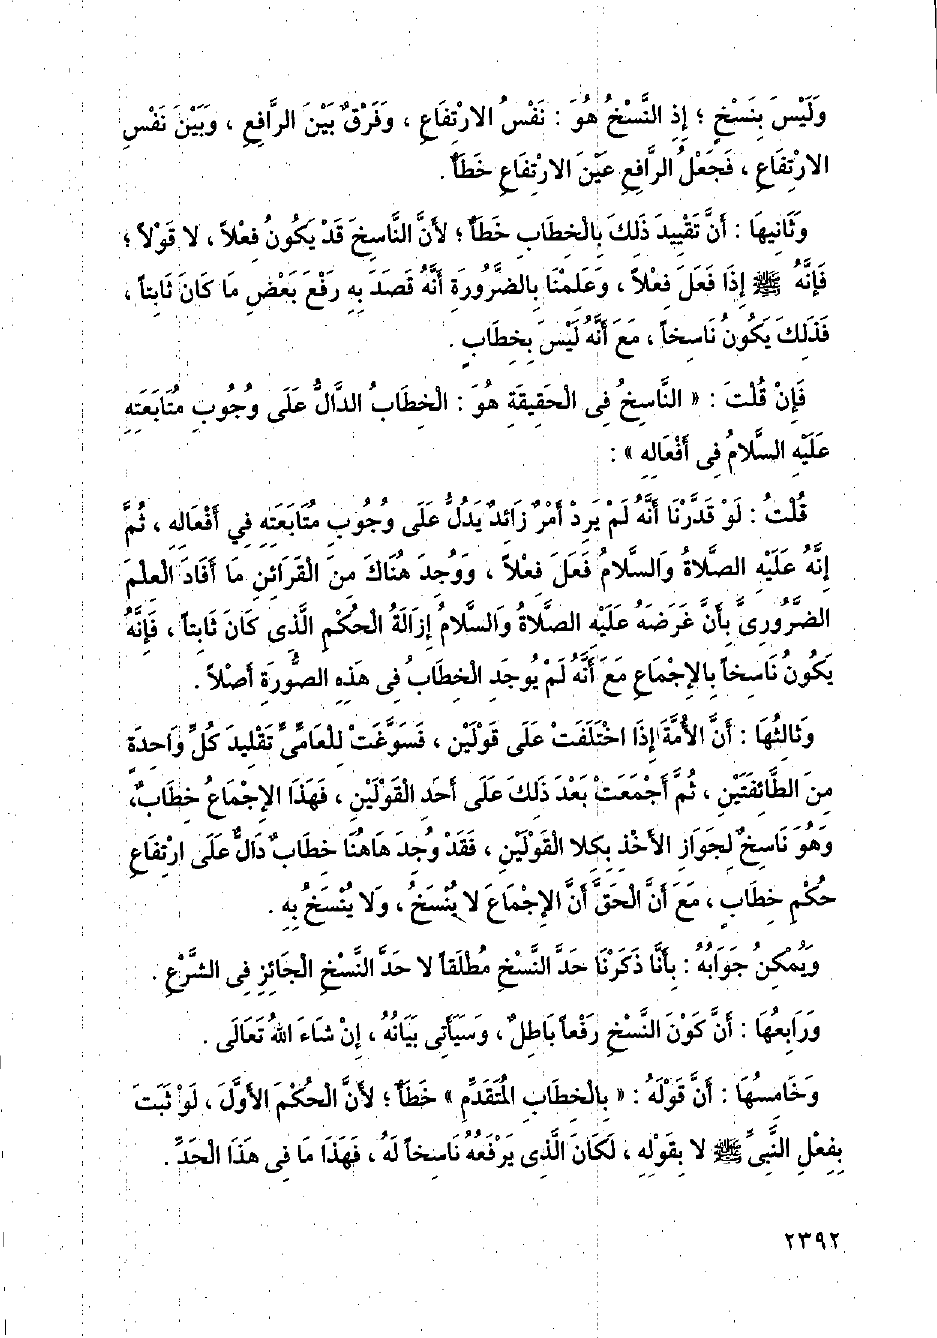 وَلَيْسَ بِنَسْخٍ ؛ إِذِ النَّسْخُ هُوَ : نَفْسُ الارْتِفَاعِ ، وَفَرْقٌ بَيْنَ الرَّافِعِ ، وَبَيْنَ نَفْسِ
الارْتِفَاعِ ، فَجَعْلُ الرَّافِعِ عَيْنَ الارْتِفَاعِ خَطَأٌ .
وَثَانِيهَا : أَنَّ تَقْيِيدَ ذَلِكَ بِالْخِطَابِ خَطَأٌ ؛ لأَنَّ النَّاسِخَ قَدْ يَكُونُ فِعْلاً ، لا قَوْلاً ؛
فَإِنَّهُ ﷺ إِذَا فَعَلَ فِعْلاً ، وَعَلِمْنَا بِالضَّرُورَةِ أَنَّهُ قَصَدَ بِهِ رَفْعَ بَعْضِ مَا كَانَ ثَابِتاً ،
فَذَلِكَ يَكُونُ نَاسِخاً ، مَعَ أَنَّهُ لَيْسَ بِخِطَابٍ .
فَإِنْ قُلْتَ : « النَّاسِخُ فِى الْحَقِيقَةِ هُوَ : الْخِطَابُ الدَّالُّ عَلَى وُجُوبِ مُتَابَعَتِهِ
عَلَيْهِ السَّلامُ فِى أَفْعَالِهِ » :
قُلْتُ : لَوْ قَدَّرْنَا أَنَّهُ لَمْ يَرِدْ أَمْرٌ زَائِدٌ يَدُلُّ عَلَى وُجُوبِ مُتَابَعَتِهِ فِي أَفْعَالِهِ ، ثُمَّ
إِنَّهُ عَلَيْهِ الصَّلاةُ وَالسَّلامُ فَعَلَ فِعْلاً ، وَوُجِدَ هُنَاكَ مِنَ الْقَرَائِنِ مَا أَفَادَ الْعِلْمَ
الضَّرُورِىَّ بِأَنَّ غَرَضَهُ عَلَيْهِ الصَّلاةُ وَالسَّلامُ إِزَالَةُ الْحُكْمِ الَّذِى كَانَ ثَابِتاً ، فَإِنَّهُ
يَكُونُ نَاسِخاً بِالإِجْمَاعِ مَعَ أَنَّهُ لَمْ يُوجَدِ الْخِطَابُ فِى هَذِهِ الصُّورَةِ أَصْلاً .
وَثَالِثُهَا : أَنَّ الأُمَّةَ إِذَا اخْتَلَفَتْ عَلَى قَوْلَيْنِ ، فَسَوَّغَتْ لِلْعَامِّىِّ تَقْلِيدَ كُلِّ وَاحِدَةٍ
مِنَ الطَّائِفَتَيْنِ ، ثُمَّ أَجْمَعَتْ بَعْدَ ذَلِكَ عَلَى أَحَدِ الْقَوْلَيْنِ ، فَهَذَا الإِجْمَاعُ خِطَابٌ،
وَهُوَ نَاسِخٌ لِجَوَازِ الأَخْذِ بِكِلا الْقَوْلَيْنِ ، فَقَدْ وُجِدَ هَاهُنَا خِطَابٌ دَالٌّ عَلَى ارْتِفَاعِ
حُكْمِ خِطَابٍ ، مَعَ أَنَّ الْحَقَّ أَنَّ الإِجْمَاعَ لا يُنْسَخُ ، وَلا يُنْسَخُ بِهِ .
وَيُمْكِنُ جَوَابُهُ : بِأَنَّا ذَكَرْنَا حَدَّ النَّسْخِ مُطْلَقاً لا حَدَّ النَّسْخِ الْجَائِزِ فِى الشَّرْعِ .
وَرَابِعُهَا : أَنَّ كَوْنَ النَّسْخِ رَفْعاً بَاطِلٌ ، وَسَيَأْتِى بَيَانُهُ ، إِنْ شَاءَ اللهُ تَعَالَى .
وَخَامِسُهَا : أَنَّ قَوْلَهُ : « بِالْخِطَابِ الْمُتَقَدِّمِ » خَطَأٌ ؛ لأَنَّ الْحُكْمَ الأَوَّلَ ، لَوْ ثَبَتَ
بِفِعْلِ النَّبِىِّ ﷺ لا بِقَوْلِهِ ، لَكَانَ الَّذِى يَرْفَعُهُ نَاسِخاً لَهُ ، فَهَذَا مَا فِى هَذَا الْحَدِّ .
٢٣٩٢